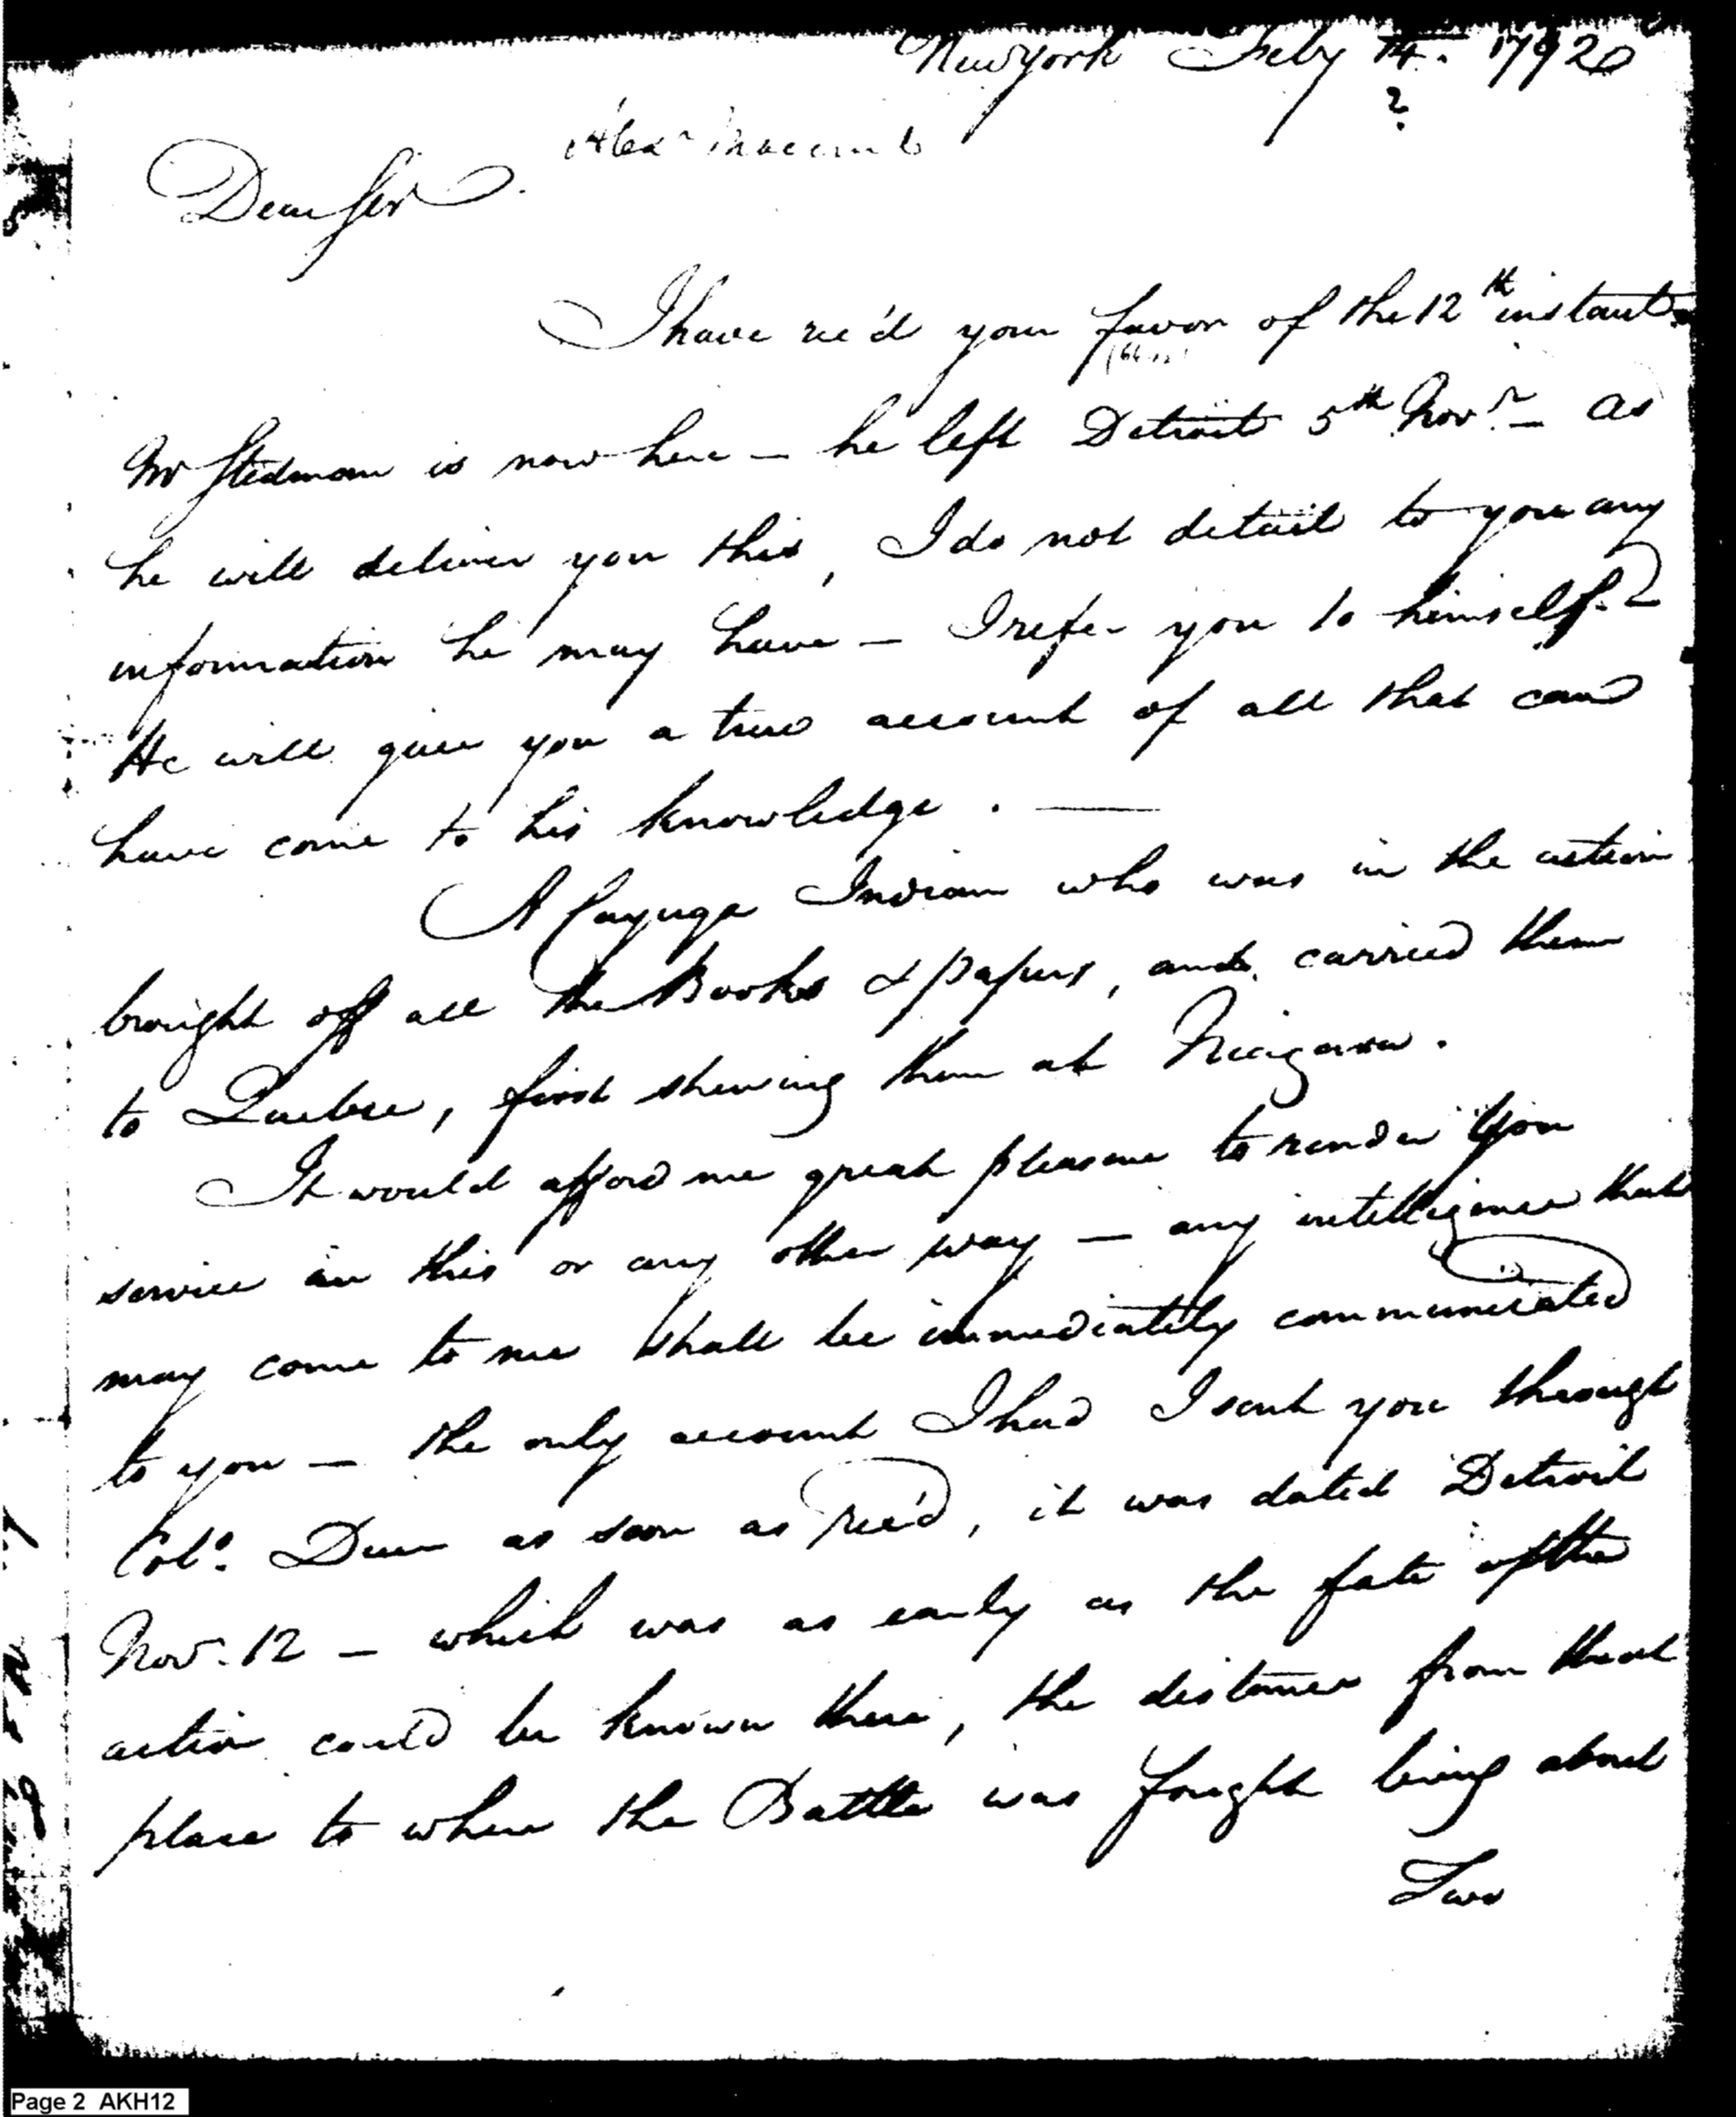 New york Feby 14. 1792
?
Alexr Macomb
Dear Sir
I have rec'd your favor of the 12th instant.
Mr Stedman is now here — he left Detroit 5th Novr. — as
he will deliver you this, I do not detail to you any
information he may have — I refer you to himself.
He will give you a true account of all that can
have come to his knowledge. —
A Cayuga Indian who was in the action
brought off all the Books & papers, and carried them
to Quebec, first shewing them at Niagara.
It would afford me great pleasure to render you
service in this or any other way — any intelligence that
may come to me shall be immediately communicated
to you — the only account I had I sent you through
Colo. Duer as soon as rec'd, it was dated Detroit
Nov. 12 — which was as early as the fate of the
action could be known there, the distance from that
place to where the Battle was fought being about
Two
Page 2 AKH12